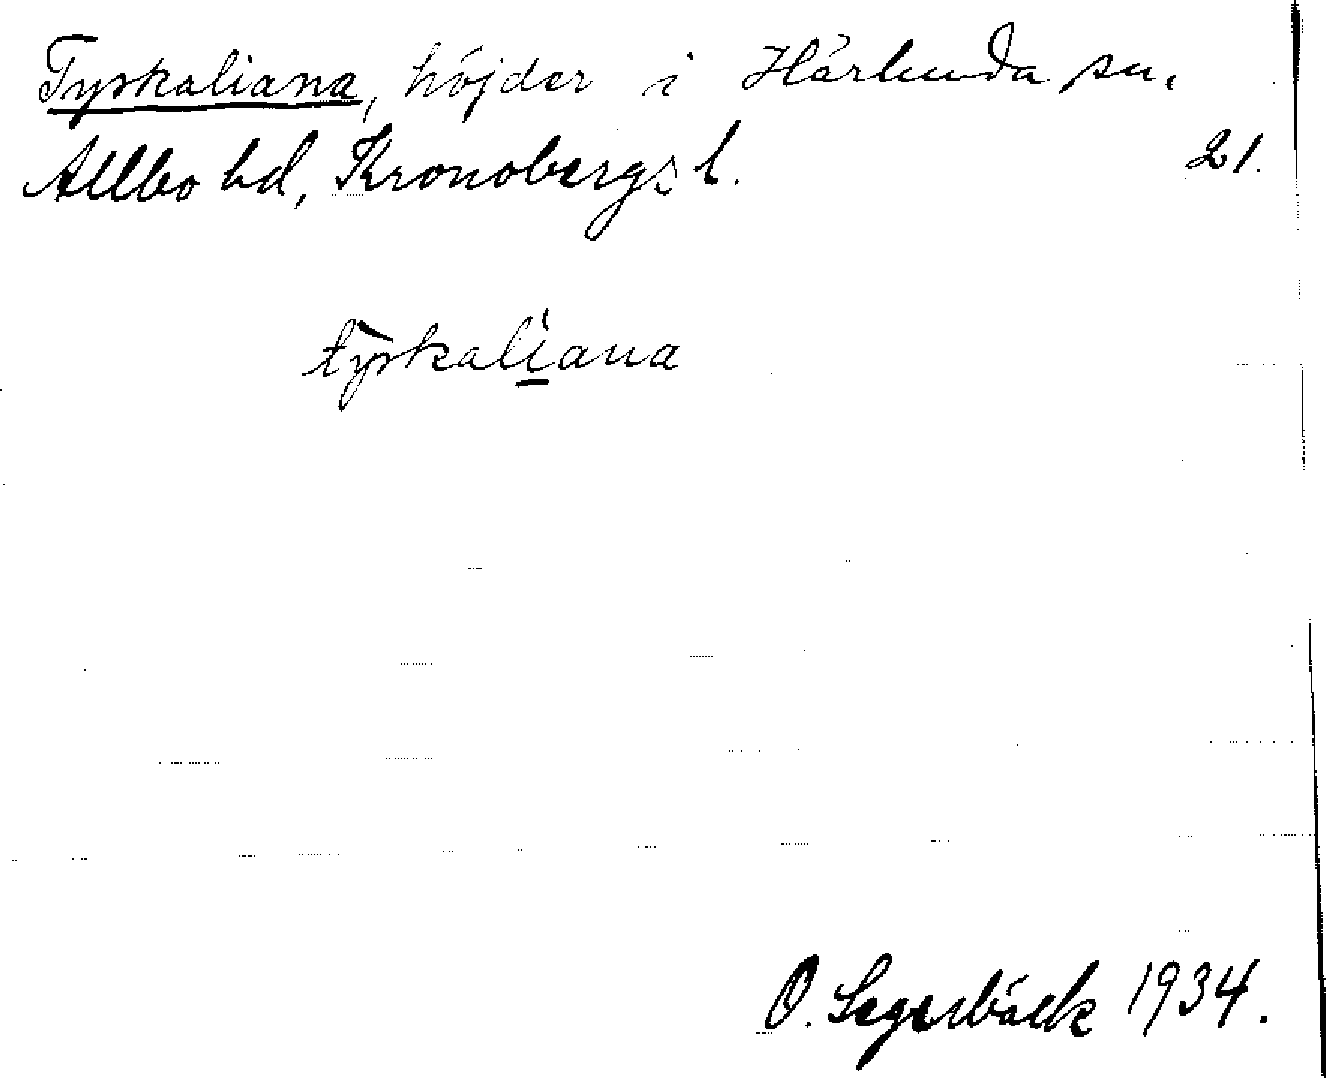 Tyskaliana, höjder i Härlunda sn.
Allbo hd, Kronobergs l. 21.
tyskaliana
O. Segerbäck 1934.